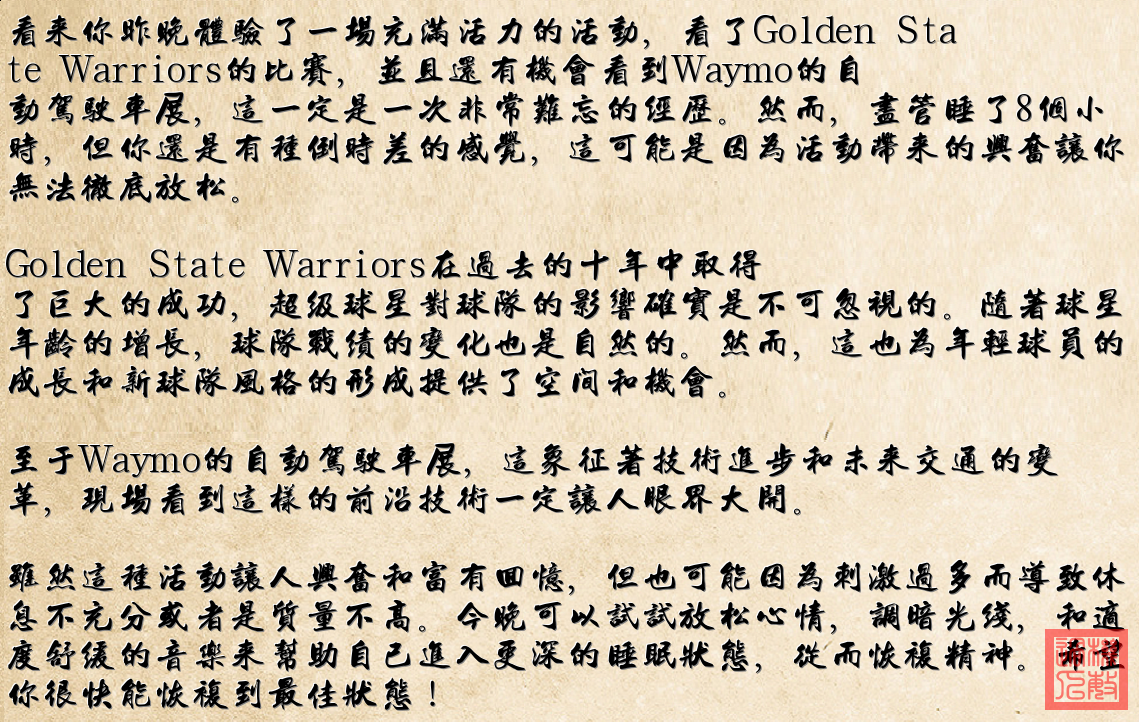 看来你昨晚體驗了一場充滿活力的活動，看了Golden Sta
te Warriors的比賽，並且還有機會看到Waymo的自
動駕駛車展，這一定是一次非常難忘的經歷。然而，盡管睡了8個小
時，但你還是有種倒時差的感覺，這可能是因為活動帶来的興奮讓你
無法徹底放松。
Golden State Warriors在過去的十年中取得
了巨大的成功，超级球星對球隊的影響確實是不可忽視的。隨著球星
年齡的增長，球隊戰績的變化也是自然的。然而，這也為年輕球員的
成長和新球隊風格的形成提供了空间和機會。
至于Waymo的自動駕駛車展，這象征著技術進步和未来交通的變
革，現場看到這樣的前沿技術一定讓人眼界大開。
雖然這種活動讓人興奮和富有回憶，但也可能因為刺激過多而導致休
息不充分或者是質量不高。今晚可以試試放松心情，調暗光綫，和適
度舒緩的音樂来幫助自己進入更深的睡眠狀態，從而恢複精神。希望
你很快能恢複到最佳狀態！